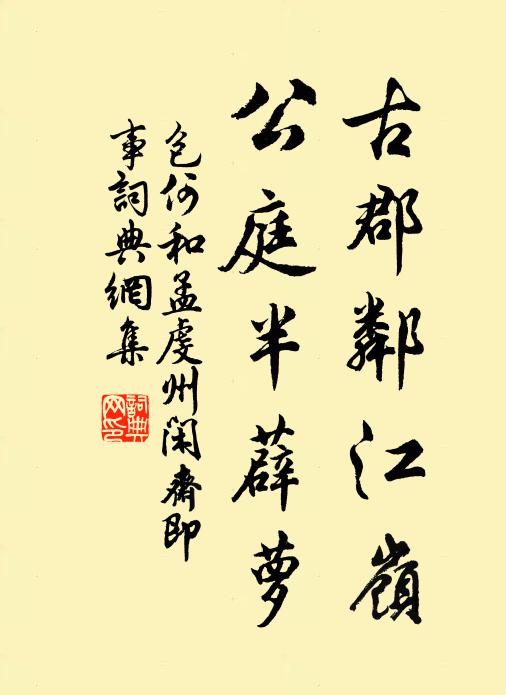 古郡鄰江嶺
公庭半薜萝
包何和孟虔州閑齋即
事詞典網集
詞典
网印